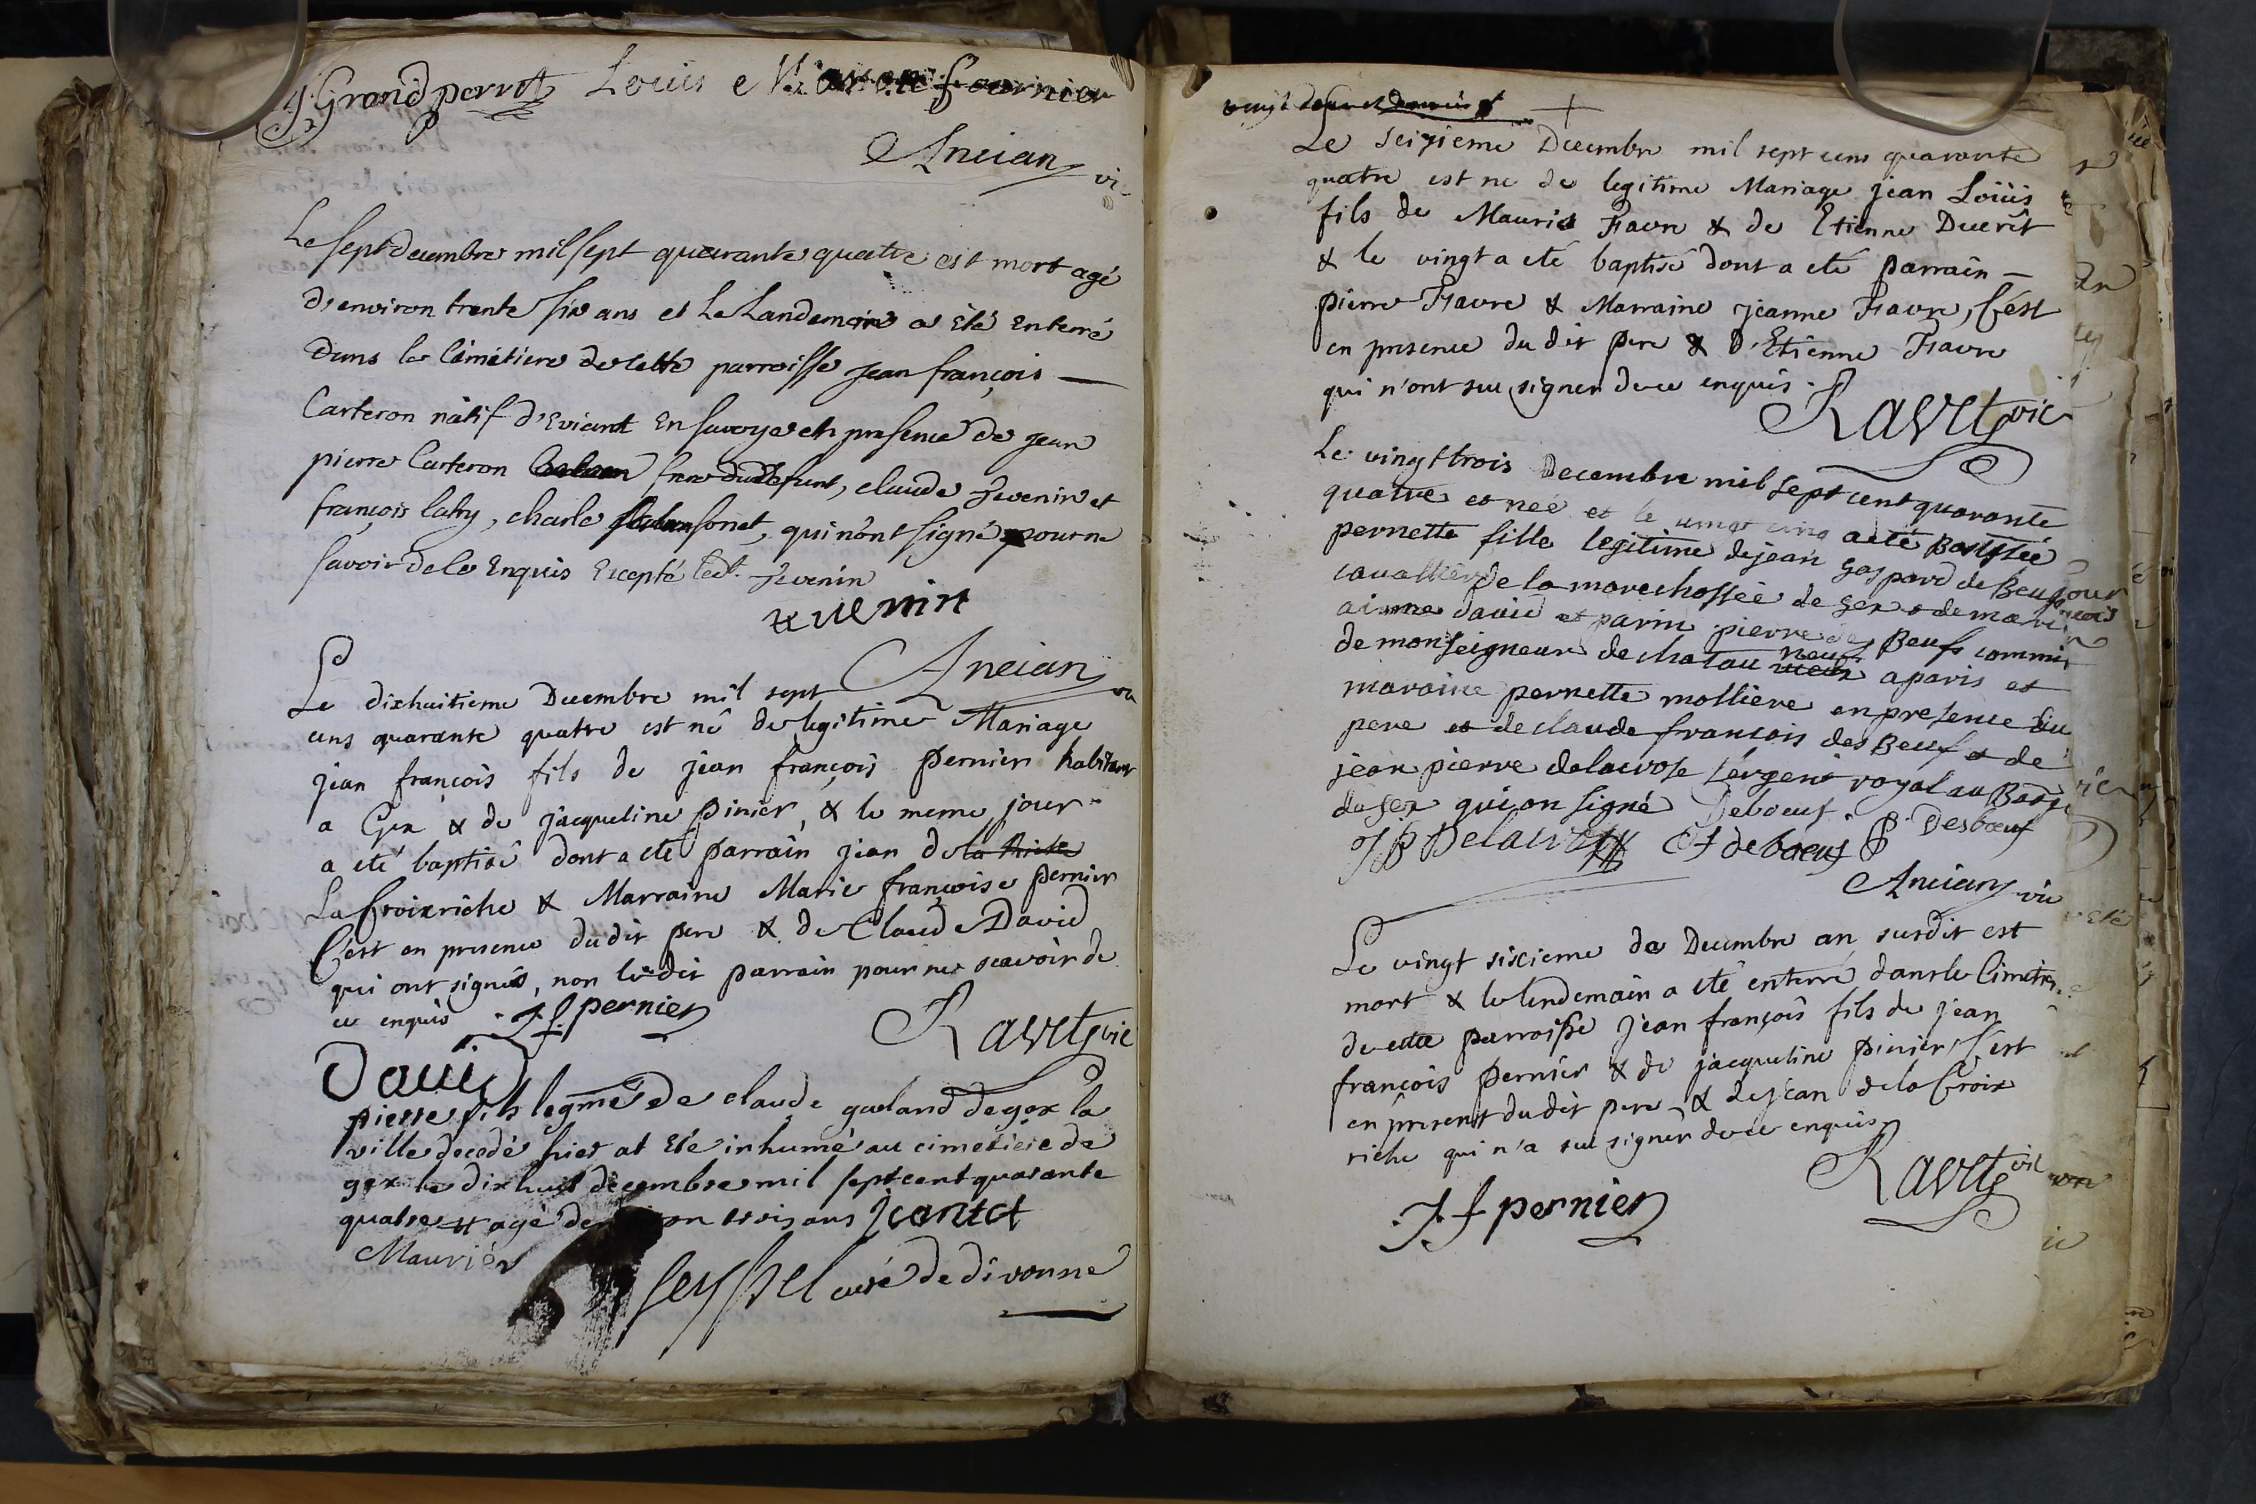 J Grandperret Louis e fournier
Ancian vic
Le sept decembre mil sept quarante quatre est mort agé
d'environ trente six ans et Le Landemain a Eté Enterré
dans le Cimétiere de cette parroisse jean françois —
Carteron nâtif d'Eviant En savoye eth presence de jean
pierre Carteron frere du defunt, claude Jevenin et
françois laby, charle sonet, qui n'ont signé pour ne
savoir de le Enquis Excepté led. Jevenin
Ancian vic
Le dixhuitieme Decembre mil sept
cens quarante quatre est né de legitime Mariage
jean françois fils de jean françois pernier habitant
a Gex & de jacqueline pinier, & le meme jour
a eté baptisé dont a eté parrain jean de la
La Croix riche & Marraine Marie françoise pernier
C'est en presence dudit pere & de Claude David
qui ont signés, non ledit parrain pour ne scavoir de
ce enquis. J f pernier
Ravet vic
David
pierre fils legme de claude galand de gex la
ville decedé hier at Eté inhumé au cimetiere de
gex le dix huit decembre mil sept cent quarante
quatre agé de on trois ans Jcantet
Maurier
Seyssel curé de divonne
vingt
Le seizieme Decembre mil sept cens quarante
quatre est ne de legitime Mariage jean Loüis
fils de Mauris Favre & de Etienne Ducrêt
& le vingt a eté baptisé dont a eté parrain —
pierre Favre & Marraine jeanne Favre, C'est
en presence du dit pere & D'Etienne Favre
qui n'ont sceu signer de ce enquis.
Ravet vic
Le vingt trois Decembre mil sept cent quarante
quatre es neé et le vingt cinq a eté Batisée
pernette fille legitime de jean gaspard de Beufs
cavallier de la marechossée de gex & de
aimee david et parin pierre des Beufs commis
de monseigneur de chatau neuf a paris et
maraine pernette molliere en presence du
pere et de claude francois des Beuf & de
jean pierre delacrose sergent royal au Bailliage
de gex qui on signé Deboeuf.
JP Delacroix Cf deboeuf P Desboeuf
Ancian vic
Le vingt sixieme de Decembre an susdit est
mort & le lendemain a eté enterré dans le Cimetre
de cette parroisse jean françois fils de jean
françois pernier & de jacqueline pinier, C'est
en present du dit pere & de jean de la Croix
riche qui n'a sceu signer de ce enquis
Ravet vic
J f pernier